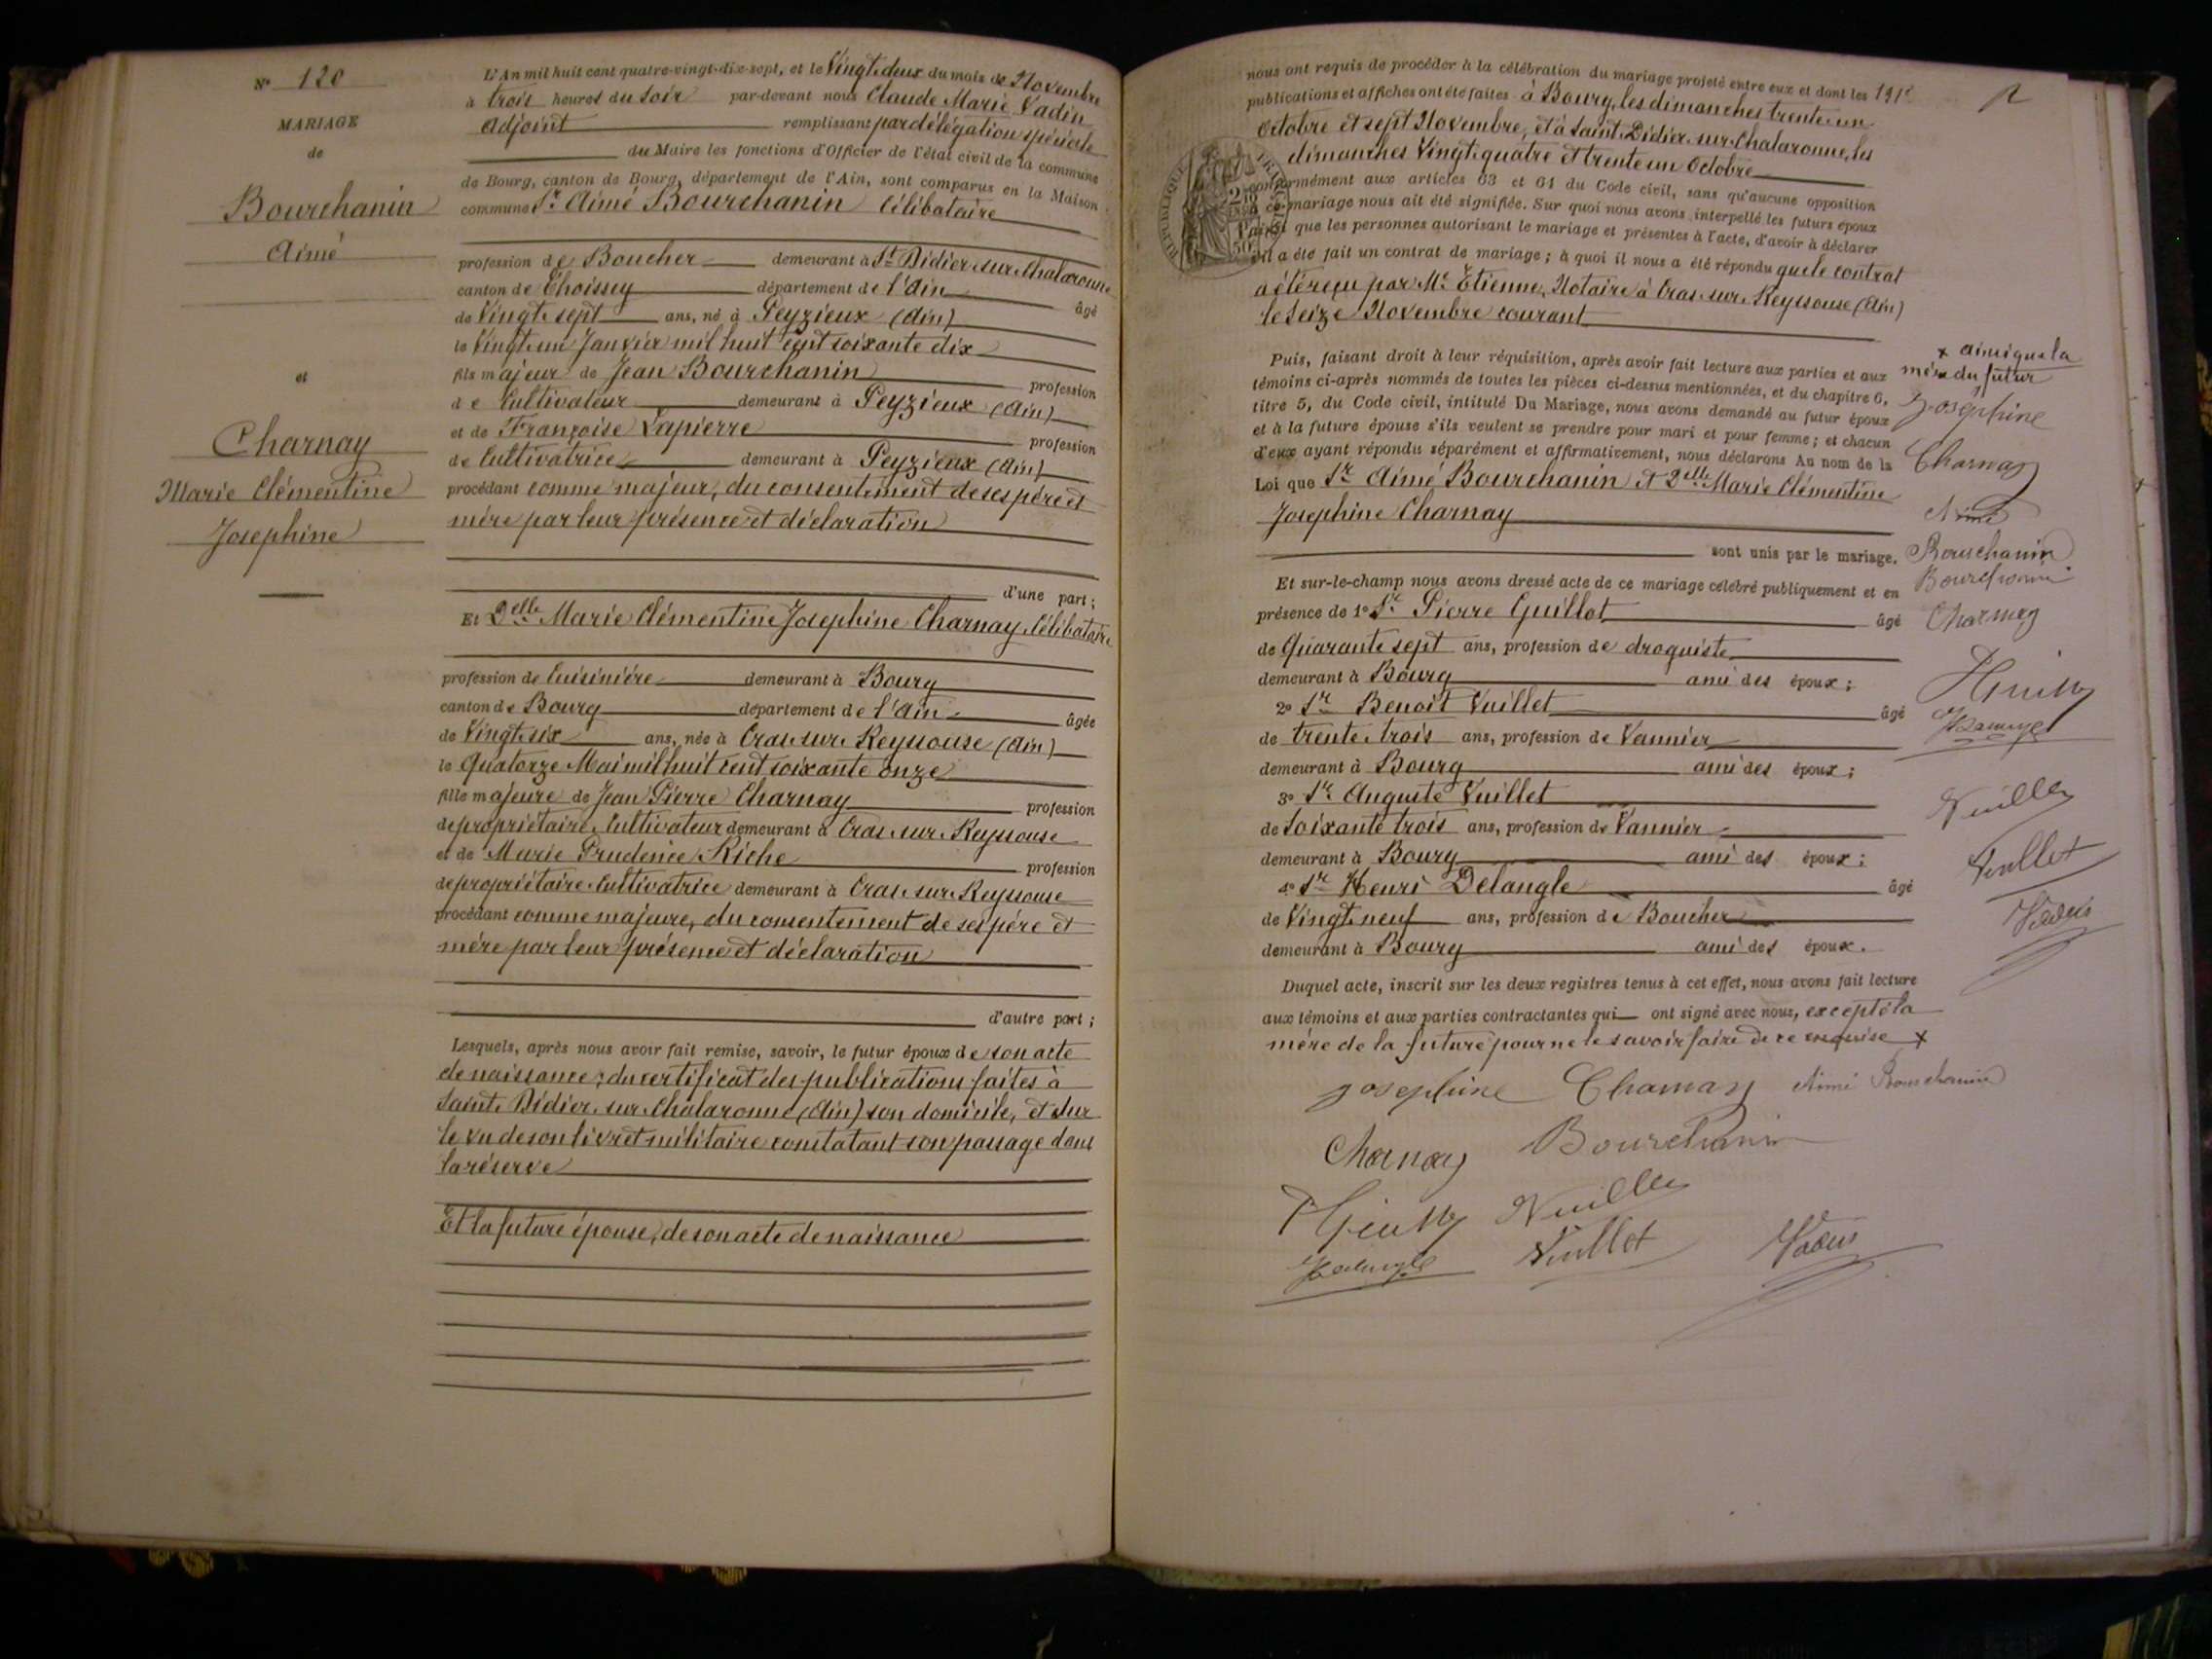 N° 120
MARIAGE
de
Bourchanin
Aimé
et
Charnay
Marie Clémentine
Josephine
L'An mil huit cent quatre-vingt-dix-sept, et le Vingt-deux du mois de Novembre
à trois heures du soir par-devant nous Claude Marie Vadin
adjoint remplissant par délégation spéciale
du Maire les fonctions d'Officier de l'état civil de la commune
de Bourg, canton de Bourg, département de l'Ain, sont comparus en la Maison
commune Sr Aimé Bourchanin Célibataire
profession de Boucher demeurant à St Didier sur Chalaronne
canton de Thoissey département de l'Ain âgé
de Vingt sept ans, né à Peyzieux (Ain)
le Vingt un Janvier mil huit cent soixante dix
fils majeur de Jean Bourchanin profession
de Cultivateur demeurant à Peyzieux (Ain)
et de Françoise Lapierre profession
de Cultivatrice demeurant à Peyzieux (Ain)
procédant comme majeur, du consentement de ses père et
mère par leur présence et déclaration
d'une part;
Et Delle Marie Clémentine Josephine Charnay Célibataire
profession de Cuisinière demeurant à Bourg
canton de Bourg département de l'Ain âgée
de Vingt six ans, née à Cras sur Reyssouse (Ain)
le Quatorze Mai mil huit cent soixante onze
fille majeure de Jean Pierre Charnay profession
de propriétaire Cultivateur demeurant à Cras sur Reyssouse
et de Marie Prudence Riche profession
de propriétaire Cultivatrice demeurant à Cras sur Reyssouse
procédant comme majeure, du consentement de ses père et
mère par leur présence et déclaration
d'autre part;
Lesquels, après nous avoir fait remise, savoir, le futur époux de son acte
de naissance; du certificat des publications faites à
Saint Didier sur Chalaronne (Ain) son domicile, et sur
le vu de son livret militaire constatant son passage dans
la réserve
Et la future épouse, de son acte de naissance
nous ont requis de procéder à la célébration du mariage projeté entre eux et dont les
publications et affiches ont été faites à Bourg, les dimanches trente-un
Octobre et sept Novembre, et à Saint Didier sur Chalaronne, les
dimanches Vingt quatre et trente un Octobre
conformément aux articles 63 et 64 du Code civil, sans qu'aucune opposition
à ce mariage nous ait été signifiée. Sur quoi nous avons interpellé les futurs époux
ainsi que les personnes autorisant le mariage et présentes à l'acte, d'avoir à déclarer
s'il a été fait un contrat de mariage; à quoi il nous a été répondu que le contrat
a été reçu par Me Etienne, Notaire à Cras sur Reyssouse (Ain)
le Seize Novembre courant
Puis, faisant droit à leur réquisition, après avoir fait lecture aux parties et aux
témoins ci-après nommés de toutes les pièces ci-dessus mentionnées, et du chapitre 6,
titre 5, du Code civil, intitulé Du Mariage, nous avons demandé au futur époux
et à la future épouse s'ils veulent se prendre pour mari et pour femme; et chacun
d'eux ayant répondu séparément et affirmativement, nous déclarons Au nom de la
Loi que Sr Aimé Bourchanin et Delle Marie Clémentine
Josephine Charnay
sont unis par le mariage.
Et sur-le-champ nous avons dressé acte de ce mariage célébré publiquement et en
présence de 1° Sr Pierre Guillot âgé
de Quarante sept ans, profession de droguiste
demeurant à Bourg ami des époux;
2° Sr Benoit Vuillet âgé
de trente trois ans, profession de Vannier
demeurant à Bourg ami des époux;
3° Sr Auguste Vuillet
de Soixante trois ans, profession de Vannier
demeurant à Bourg ami des époux;
4° Sr Henri Delangle âgé
de Vingt neuf ans, profession de Boucher
demeurant à Bourg ami des époux.
Duquel acte, inscrit sur les deux registres tenus à cet effet, nous avons fait lecture
aux témoins et aux parties contractantes qui ont signé avec nous, excepté la
mère de la future pour ne le savoir faire de ce enquise x
josephine Charnay Aimé Bourchanin
Charnay Bourchanin
Vuillet
Delangle Vuillet Vadin
191e
x ainsi que la
mère du futur
Josephine
Charnay
Aimé
Bourchanin
Bourchanin
Charnay
Delangle
Vuillet
Vuillet
Vadin